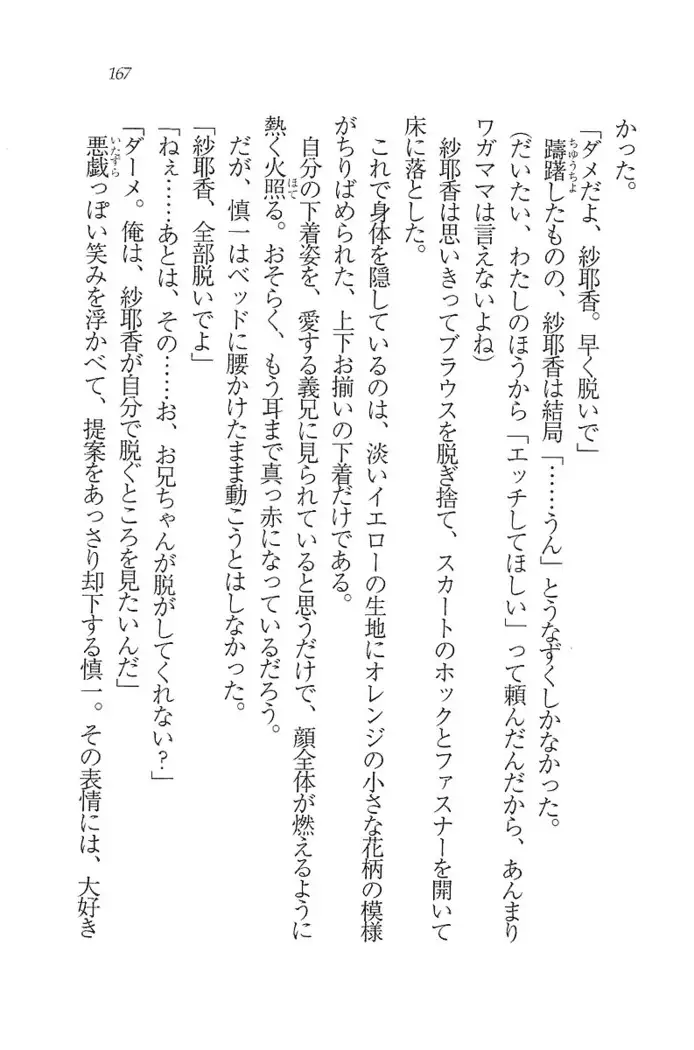 167
かった。
「ダメだよ、紗耶香。早く脱いで」
躊躇したものの、紗耶香は結局「……うん」とうなずくしかなかった。
(だいたい、わたしのほうから「エッチしてほしい」って頼んだんだから、あんまり
ワガママは言えないよね)
紗耶香は思いきってブラウスを脱ぎ捨て、スカートのホックとファスナーを開いて
床に落とした。
これで身体を隠しているのは、淡いイエローの生地にオレンジの小さな花柄の模様
がちりばめられた、上下お揃いの下着だけである。
自分の下着姿を、愛する義兄に見られていると思うだけで、顔全体が燃えるように
熱く火照る。おそらく、もう耳まで真っ赤になっているだろう。
だが、慎一はベッドに腰かけたまま動こうとはしなかった。
「紗耶香、全部脱いでよ」
「ねぇ……あとは、その……お、お兄ちゃんが脱がしてくれない?」
「ダーメ。俺は、紗耶香が自分で脱ぐところを見たいんだ」
悪戯っぽい笑みを浮かべて、提案をあっさり却下する慎一。その表情には、大好き